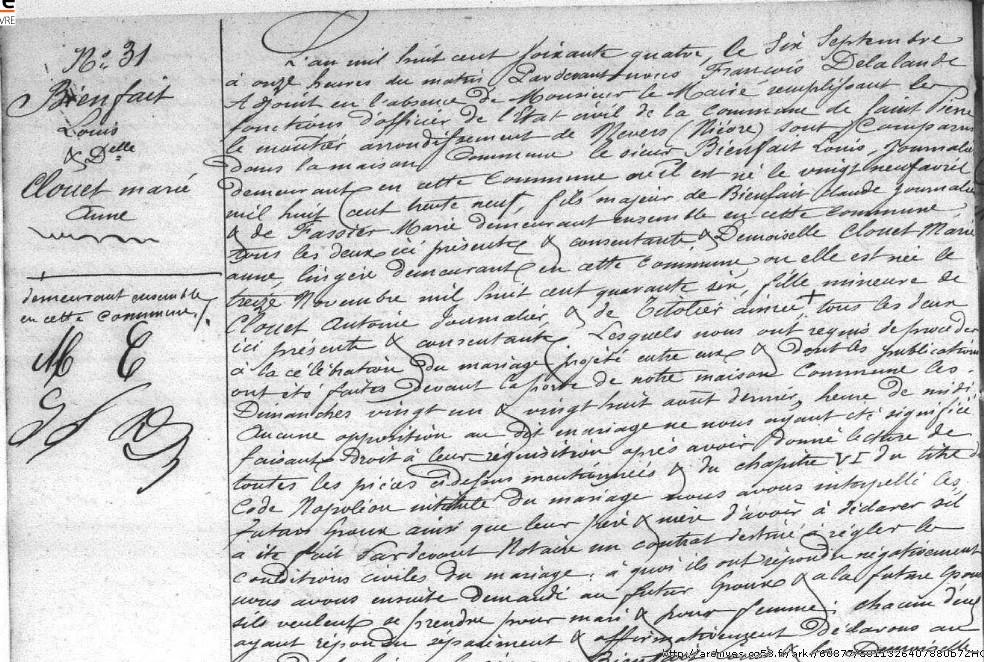 VRE
Nº 31
Bienfait
Louis
& Delle
Clouet marie
Anne
demeurant ensemble
en cette commune
L'an mil huit cent soixante quatre le Six Septembre
à onze heures du matin Pardevant nous François Delalande
Adjoint en l'absence de Monsieur le Maire remplissant les
fonctions d'officier de l'Etat civil de la Commune de Saint Pierre
le moutier arrondissement de Nevers (Nièvre) sont Comparus
dans la maison Commune le sieur Bienfait Louis, Journalier
demeurant en cette Commune où il est né le vingt neuf avril
mil huit Cent trente neuf, fils majeur de Bienfait Claude Journalier
& de Marie demeurant ensemble en cette Commune
tous les deux ici présents & consentants & Demoiselle Clouet Marie
anne lingère demeurant en cette Commune où elle est née le
treize Novembre mil huit cent quarante six, fille mineure de
Clouet Antoine Journalier & de tous les deux
ici présents & consentants. Lesquels nous ont requis de procéder
à la célébration du mariage projeté entre eux & dont les publications
ont été faites devant la porte de notre maison Commune les
Dimanches vingt un & vingt huit aout dernier, heure de midi
Aucune opposition au dit mariage ne nous ayant été signifiée
faisant Droit à leur réquisition après avoir Donné lecture de
toutes les pièces cidessus mentionnées & du chapitre VI du titre du
Code Napoléon intitulé du mariage nous avons interpellé les
futurs Epoux ainsi que leur père & mère d'avoir à déclarer sil
a été fait Pardevant Notaire un contrat destiné à régler les
conditions civiles du mariage; à quoi ils ont répondu négativement
nous avons ensuite demandé au futur Epoux & a la future Epouse
sils veulent se prendre pour mari & pour femme; chacun d'eux
ayant répondu séparément & affirmativement Déclarons au